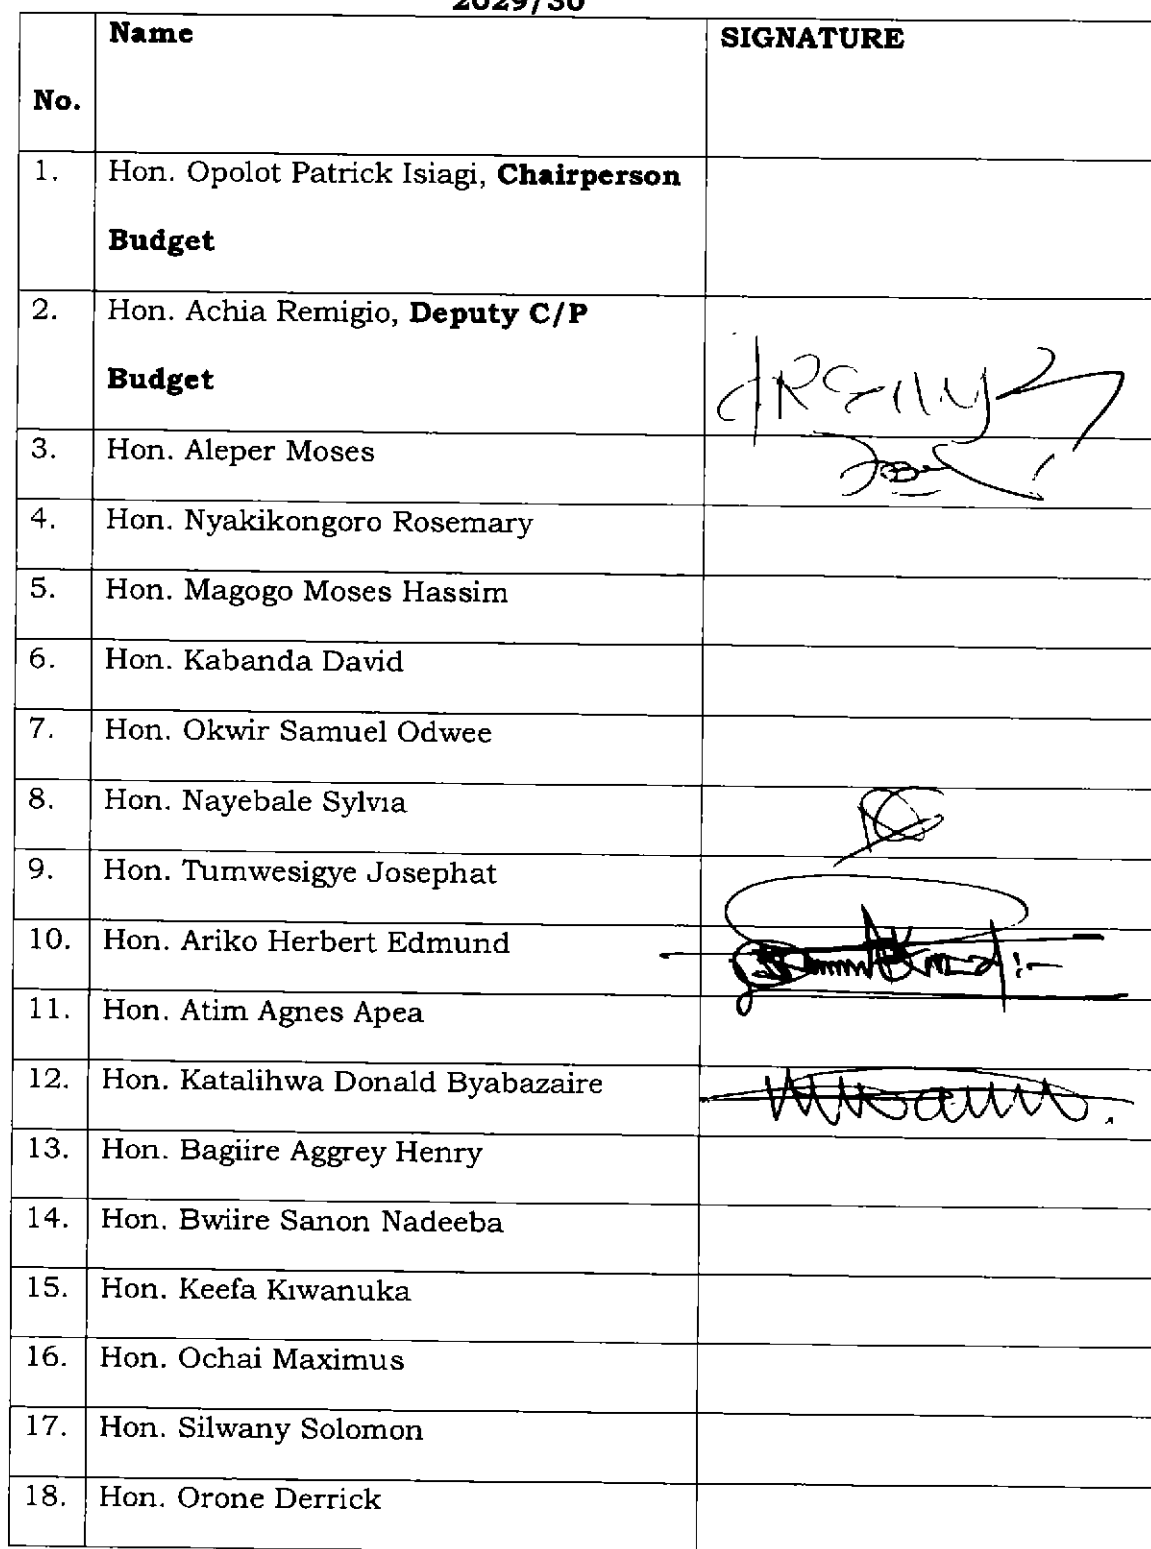 2029/30
Name
SIGNATURE
No.
1. Hon. Opolot Patrick Isiagi, Chairperson
Budget
2. Hon. Achia Remigio, Deputy C/P
Budget
3. Hon. Aleper Moses
4. Hon. Nyakikongoro Rosemary
5. Hon. Magogo Moses Hassim
6. Hon. Kabanda David
7. Hon. Okwir Samuel Odwee
8. Hon. Nayebale Sylvia
9. Hon. Tumwesigye Josephat
10. Hon. Ariko Herbert Edmund
11. Hon. Atim Agnes Apea
12. Hon. Katalihwa Donald Byabazaire
13. Hon. Bagiire Aggrey Henry
14. Hon. Bwiire Sanon Nadeeba
15. Hon. Keefa Kiwanuka
16. Hon. Ochai Maximus
17. Hon. Silwany Solomon
18. Hon. Orone Derrick